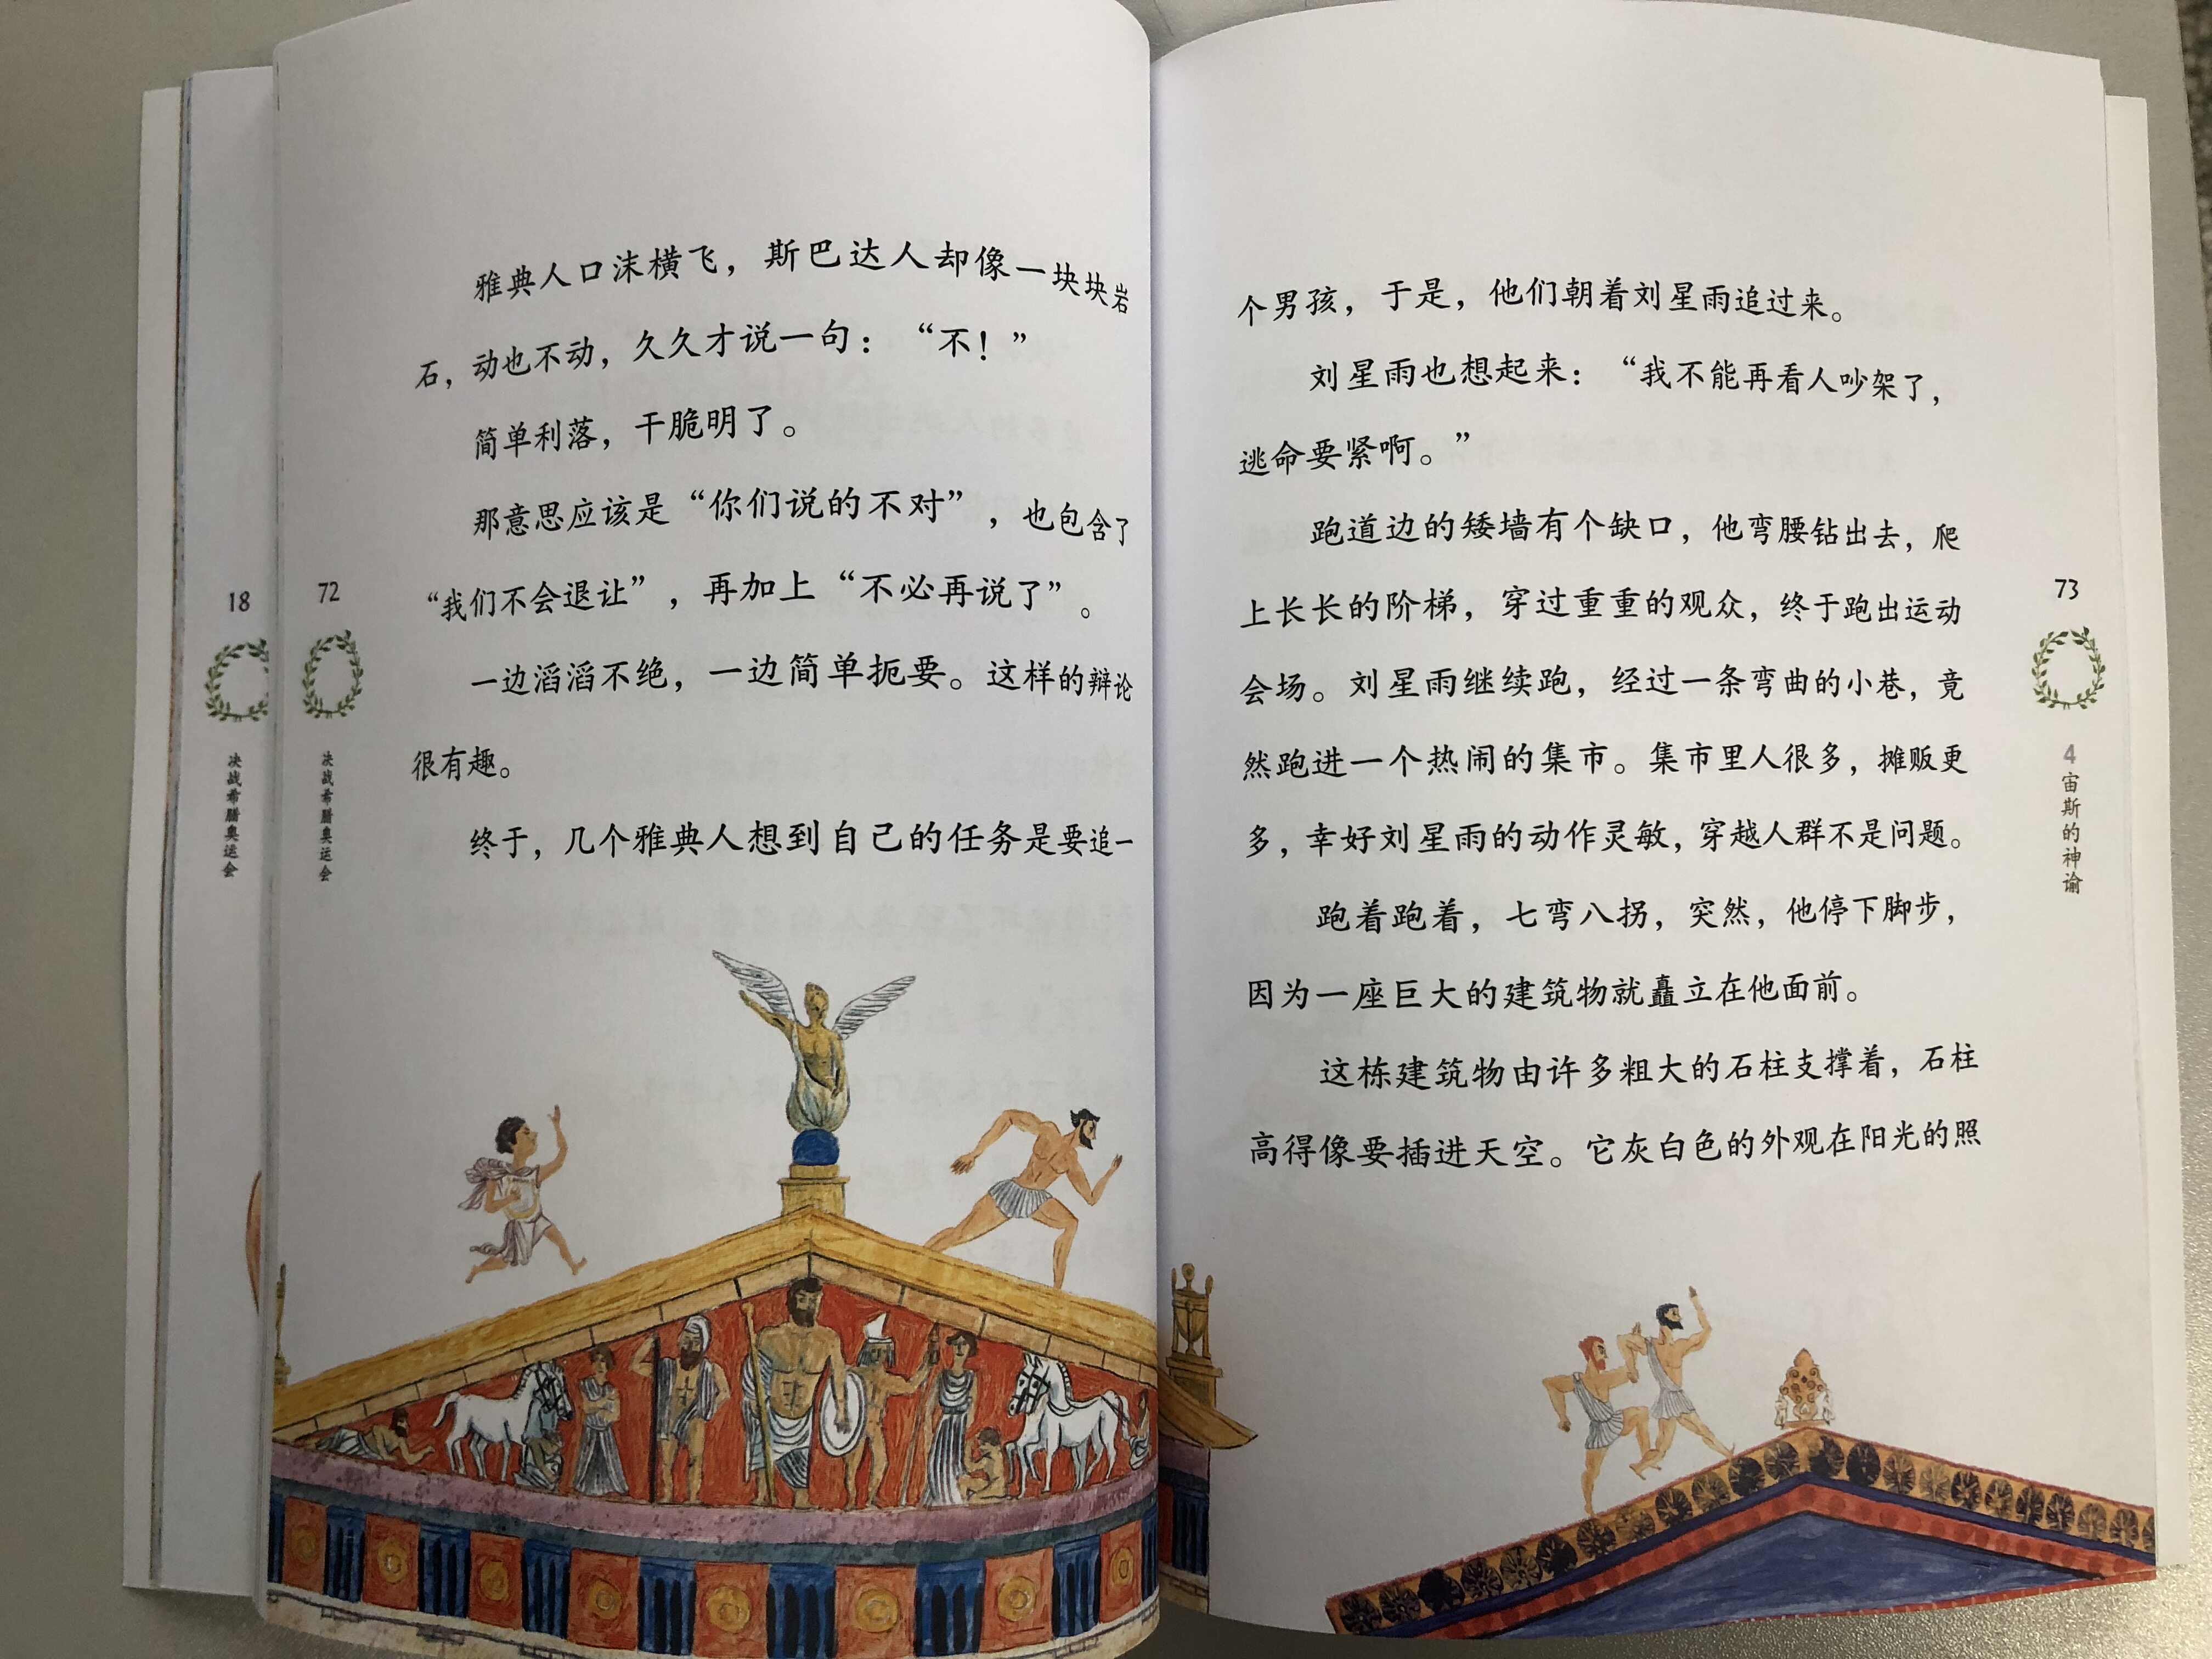 雅典人口沫横飞，斯巴达人却像一块块岩
石，动也不动，久久才说一句：“不！”
简单利落，干脆明了。
那意思应该是“你们说的不对”，也包含了
“我们不会退让”，再加上“不必再说了”。
一边滔滔不绝，一边简单扼要。这样的辩论
很有趣。
终于，几个雅典人想到自己的任务是要追一
18
决战希腊奥运会
72
决战希腊奥运会
个男孩，于是，他们朝着刘星雨追过来。
刘星雨也想起来：“我不能再看人吵架了，
逃命要紧啊。”
跑道边的矮墙有个缺口，他弯腰钻出去，爬
上长长的阶梯，穿过重重的观众，终于跑出运动
会场。刘星雨继续跑，经过一条弯曲的小巷，竟
然跑进一个热闹的集市。集市里人很多，摊贩更
多，幸好刘星雨的动作灵敏，穿越人群不是问题。
跑着跑着，七弯八拐，突然，他停下脚步，
因为一座巨大的建筑物就矗立在他面前。
这栋建筑物由许多粗大的石柱支撑着，石柱
高得像要插进天空。它灰白色的外观在阳光的照
73
4 宙斯的神谕